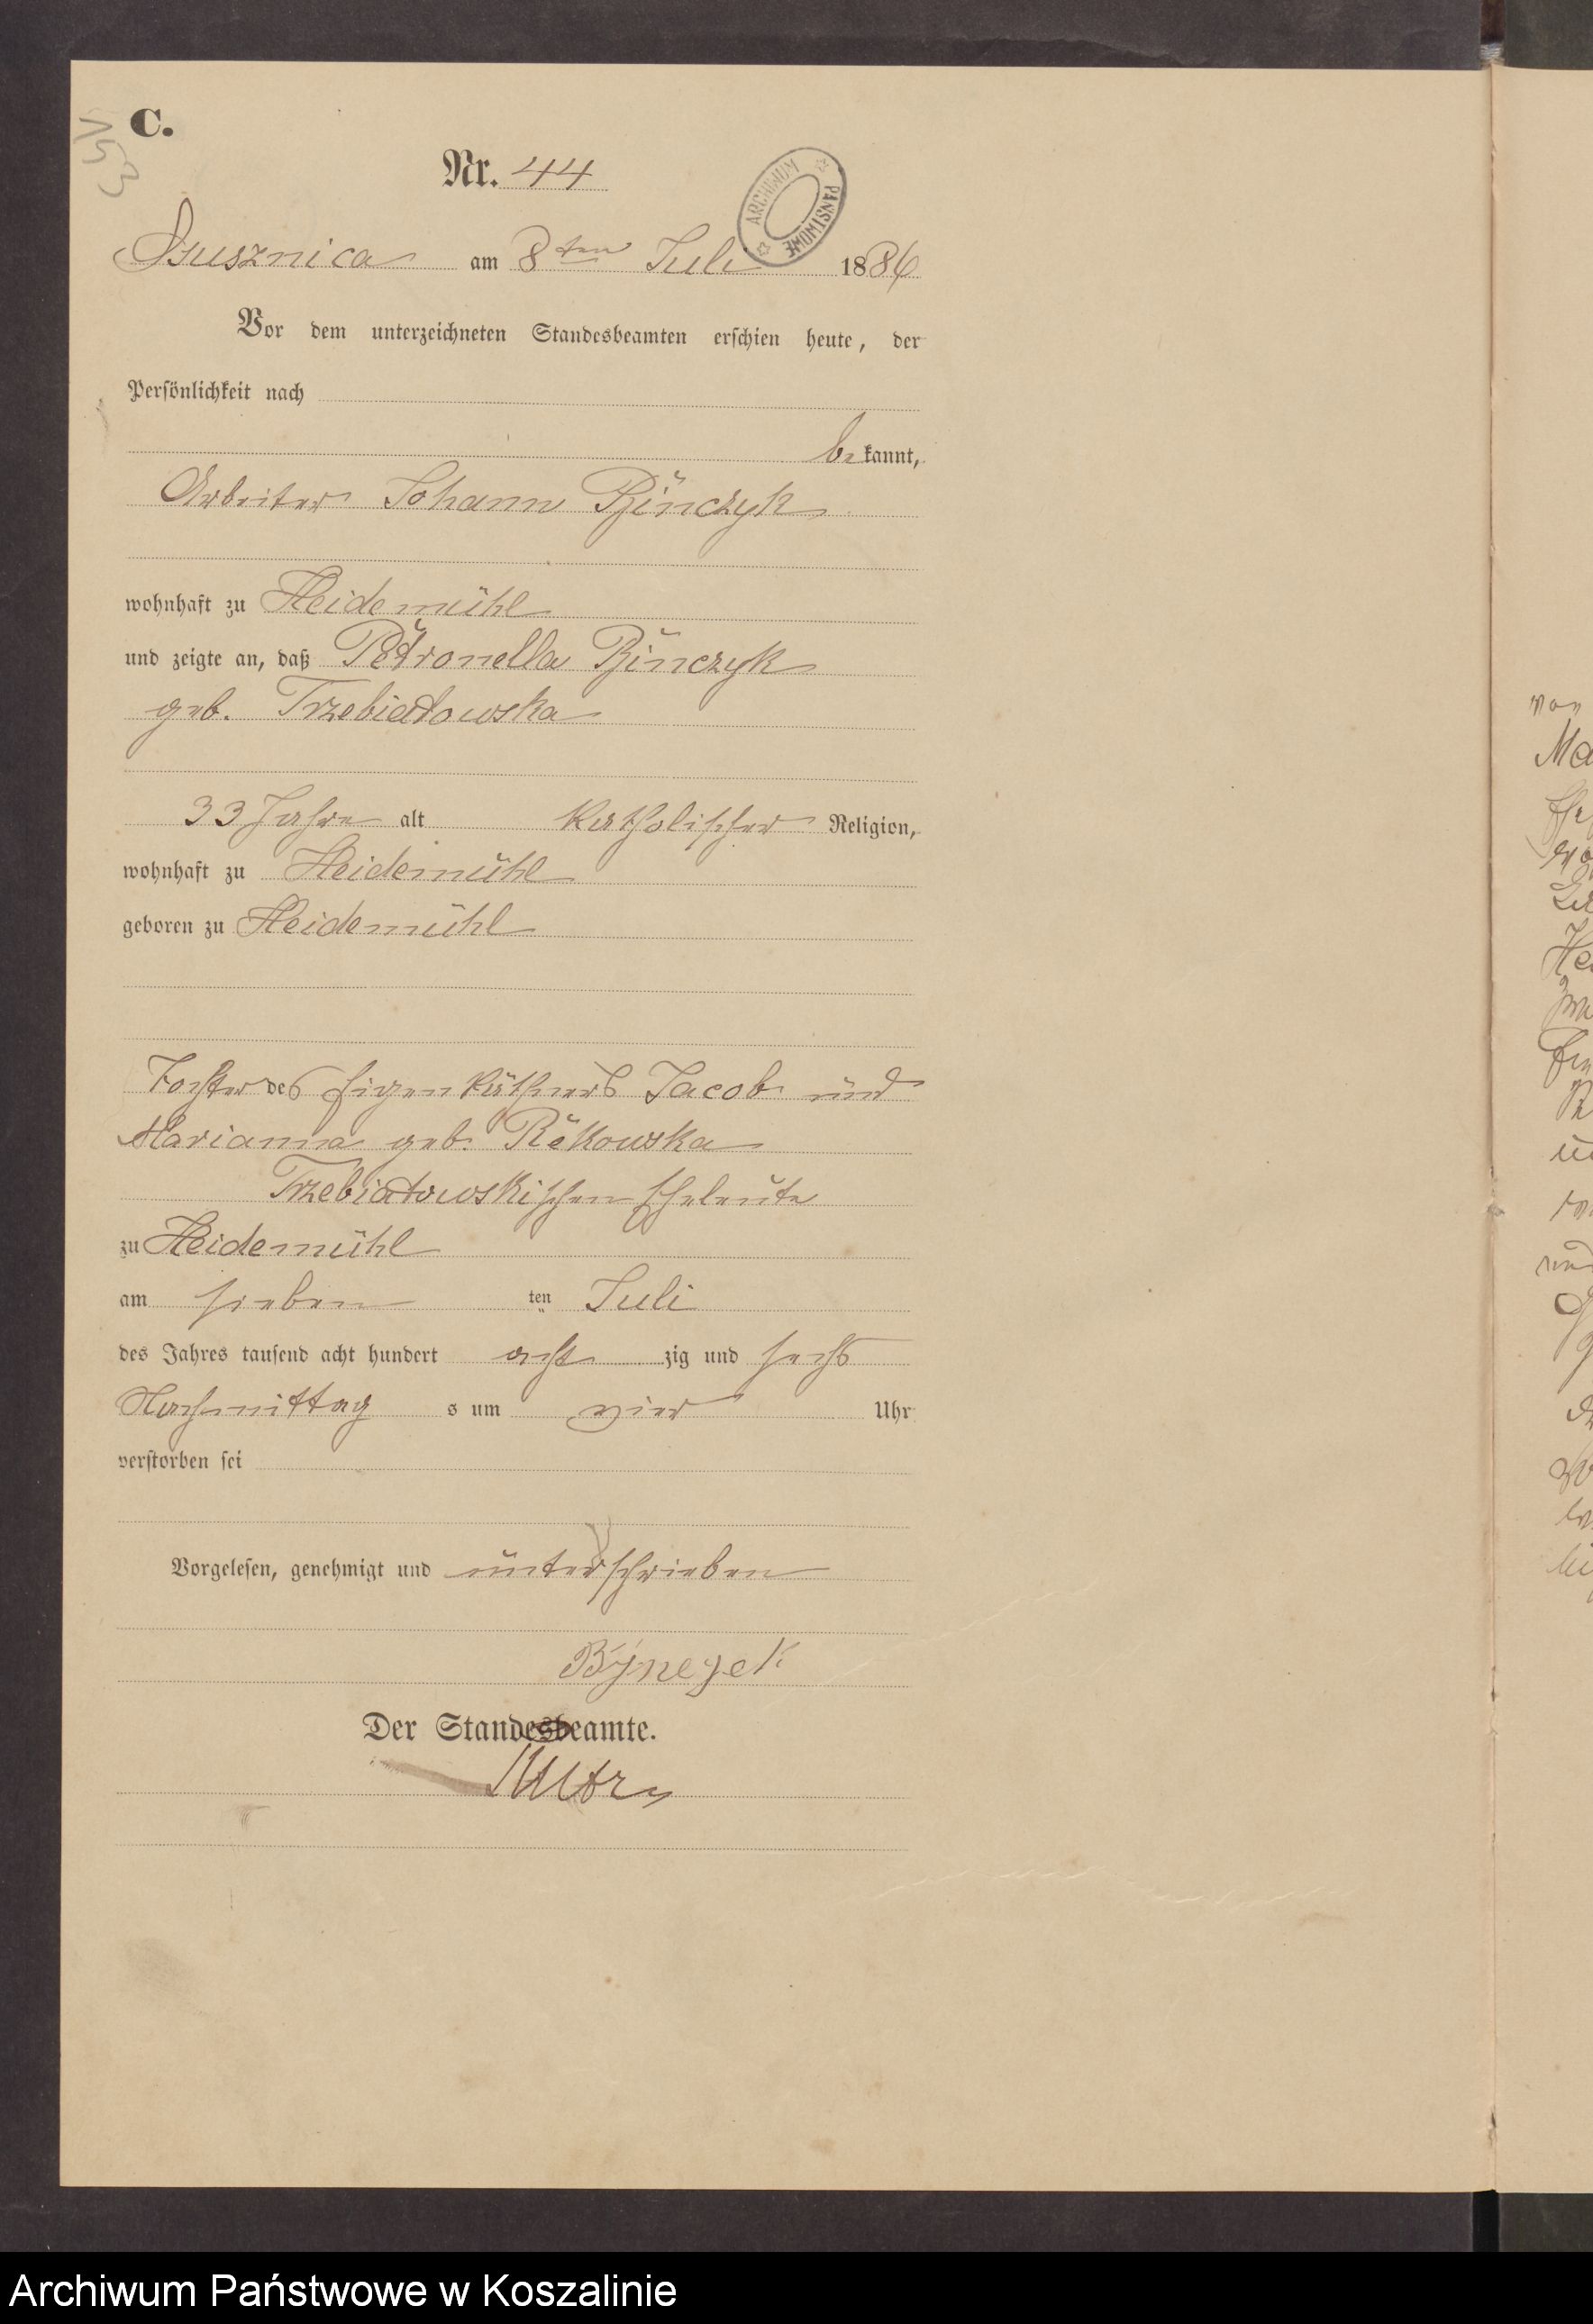 C.
153
Nr. 44
ARCHIWUM PAŃSTWOWE
Ossusznica am 8ten Juli 1886
Vor dem unterzeichneten Standesbeamten erschien heute, der
Persönlichkeit nach
bekannt,
Arbeiter Johann Binczyk
wohnhaft zu Heidemühl
und zeigte an, daß Petronella Binczyk
geb. Trzebiatowska
33 Jahre alt katholischer Religion,
wohnhaft zu Heidemühl
geboren zu Heidemühl
Tochter des Eigenkäthners Jacob und
Marianna geb. Rekowska
Trzebiatowskischen Eheleute
zu Heidemühl
am sieben ten Juli
des Jahres tausend acht hundert acht zig und sechs
Nachmittag s um vier Uhr
verstorben sei
Vorgelesen, genehmigt und unterschrieben
Der Standesbeamte.
von
Ma
Archiwum Państwowe w Koszalinie